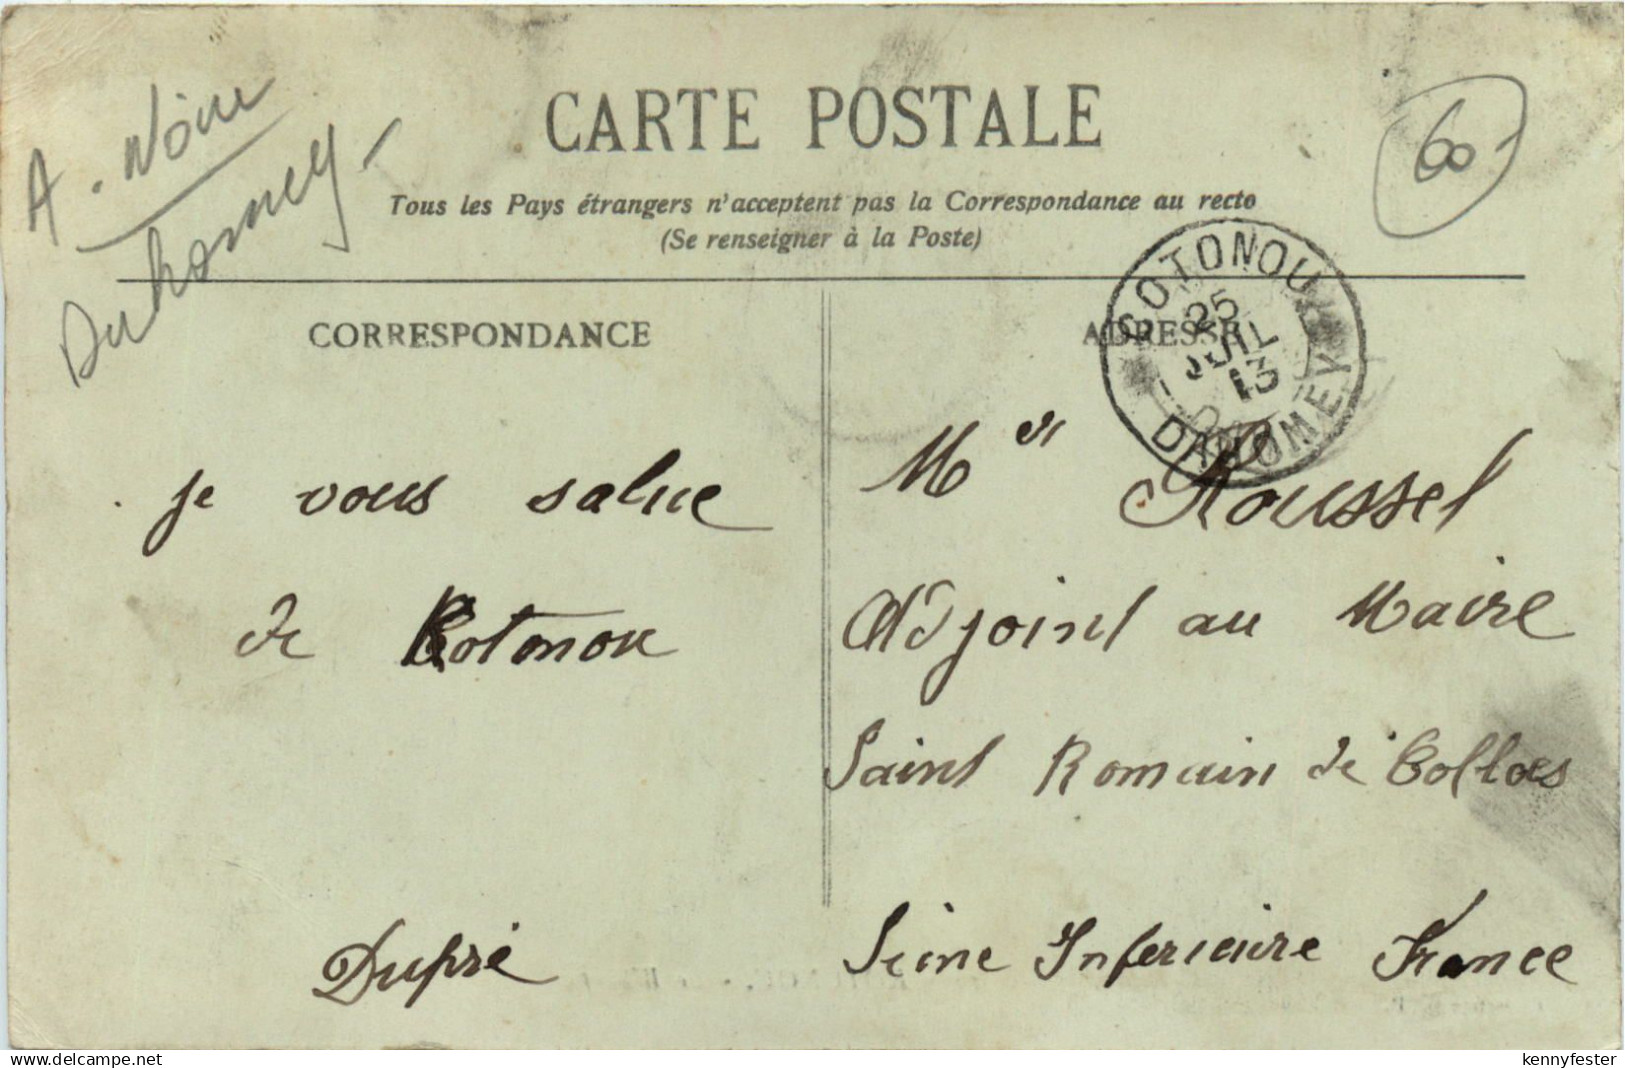 A. Noire
Duhomey -
CARTE POSTALE
60-
Tous les Pays étrangers n'acceptent pas la Correspondance au recto
(Se renseigner à la Poste)
COTONOU
25
JUIL
13
DAHOMEY
CORRESPONDANCE
ADRESSE
je vous salue
de Cotonou
Dupré
Mr Roussel
Adjoint au Maire
Saint Romain de Colbos
Seine Inferieure France
www.delcampe.net
kennyfester